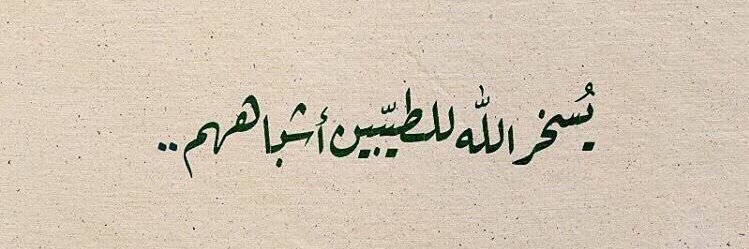 يُسخر الله للطيّبين أشباههم ..